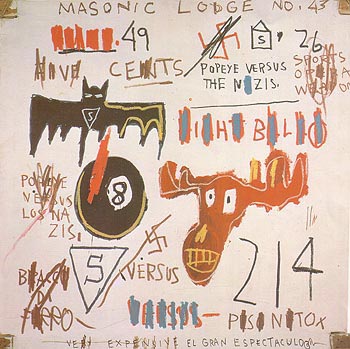 MASONIC LODGE NO. 43
49
S
26
FIVE CENTS
POPEYE VERSUS
THE NAZIS.
SPORTS
OPERA
S
EIGHT BALL
8
POPEYE
VERSUS
LOS NA
ZIS.
S
VERSUS
214
VERSUS — PISONTOX
VERY EXPENSIVE EL GRAN ESPECTACULO